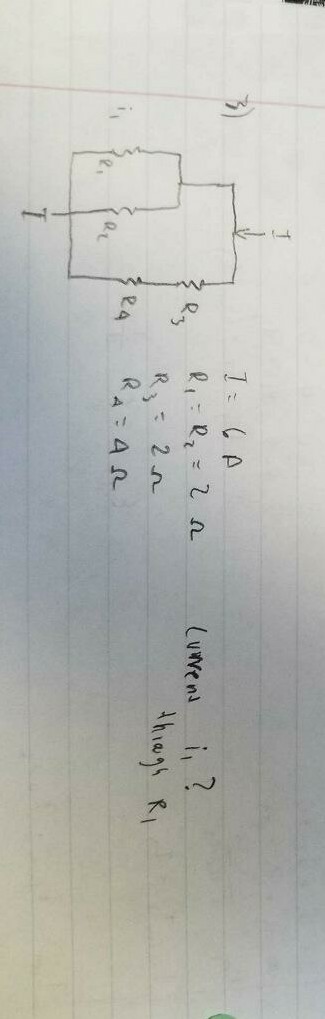 3)
I
i₁
R₁
R₂
R₃
R₄
I
I = 6 A
R₁ = R₂ = 2 Ω
R₃ = 2 Ω
R₄ = 4 Ω
Currens i₁ ?
through R₁